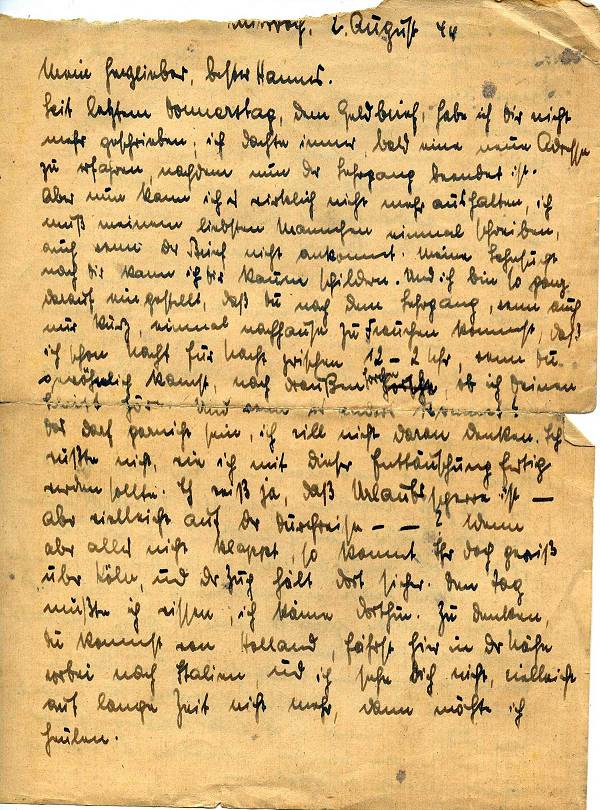 Mittwoch, 2. August 44
Mein herzlieber, bester Hannes.
Seit letztem Donnerstag, dem Geldbrief, habe ich Dir nicht
mehr geschrieben, ich dachte immer, bald eine neue Adresse
zu erfahren, nachdem nun der Lehrgang beendet ist.
Aber nun kann ich es wirklich nicht mehr aushalten, ich
muß meinem liebsten Mannchen einmal schreiben,
auch wenn der Brief nicht ankommt. Meine Sehnsucht
nach Dir kann ich Dir kaum schildern. Und ich bin so ganz
darauf eingestellt, daß Du nach dem Lehrgang, wenn auch
nur kurz, einmal nachhause zu Frauchen kommst, daß
ich schon Nacht für Nacht zwischen 12 - 2 Uhr, wenn Du
gewöhnlich kamst, nach draußen horche, ob ich Deinen
höre. Und wenn es anders kommt?
Das darf garnicht sein, ich will nicht daran denken. Ich
wüßte nicht, wie ich mit dieser Enttäuschung fertig
werden sollte. Ich weiß ja, daß Urlaubssperre ist —
aber vielleicht auf der Durchreise — — ? Wenn
aber alles nicht klappt, so kommt Ihr doch gewiß
über Köln, und der Zug hält dort sicher. Den Tag
müßte ich wissen, ich käme dorthin. Zu denken,
Du kommst von Holland, fährst hier in der Nähe
vorbei nach Italien, und ich sehe Dich nicht, vielleicht
auf lange Zeit nicht mehr, dann möchte ich
heulen.